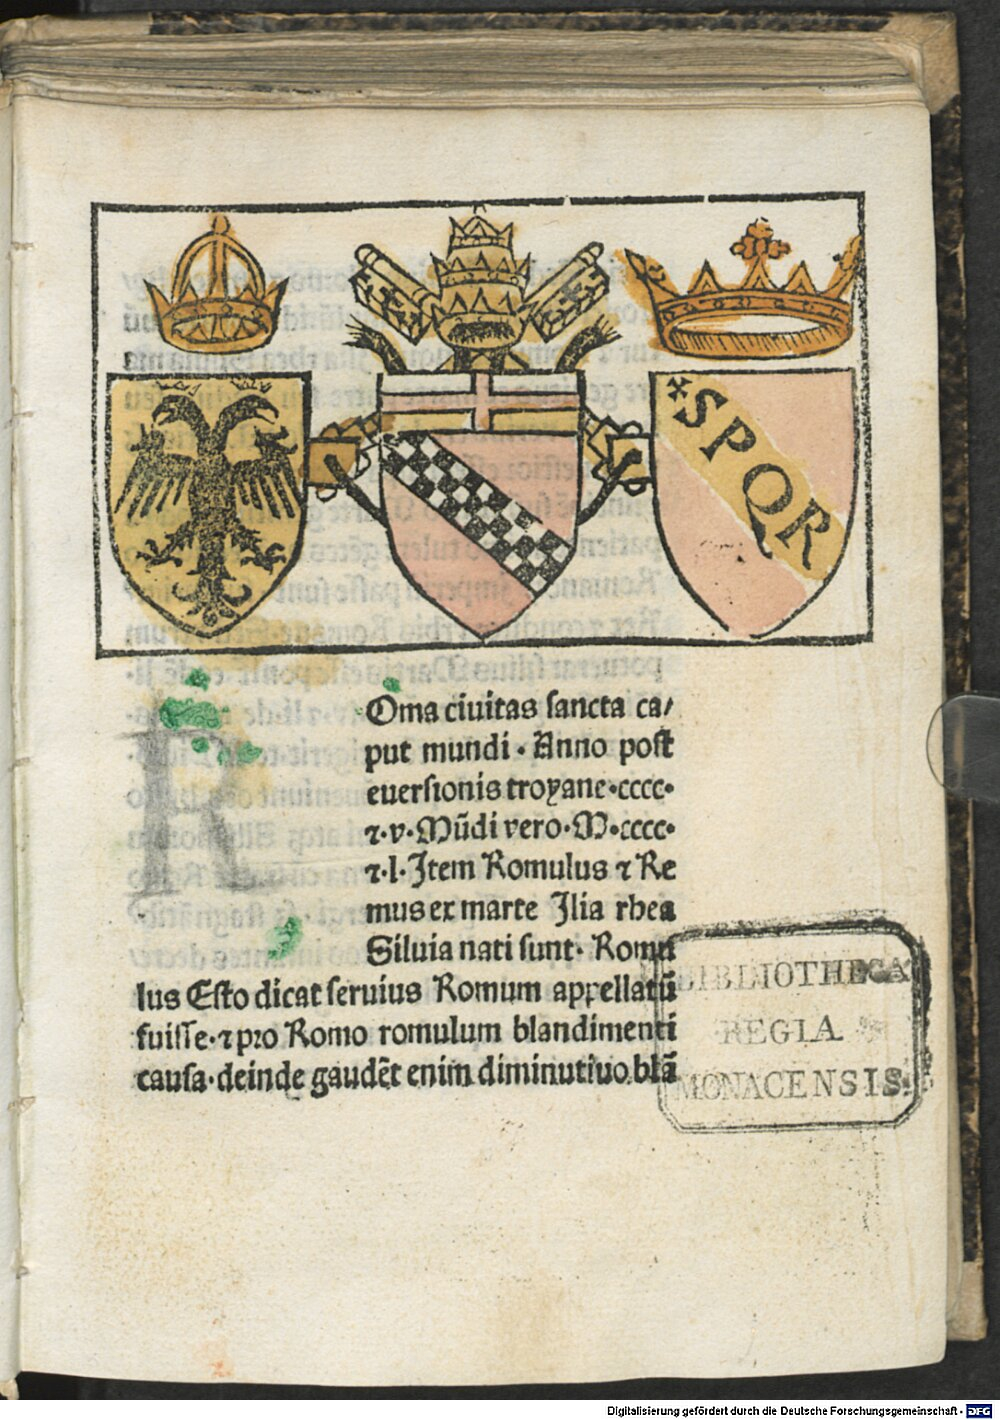 ✠SPQR
R
Oma ciuitas sancta ca/
put mundi · Anno post
euersionis troyane·cccc·
⁊·v·Mūdi vero·M·cccc·
⁊·l·Item Romulus ⁊ Re
mus ex marte Ilia rhea
Siluia nati sunt· Romu
lus Esto dicat seruius Romum appellatū
fuisse·⁊ pro Romo romulum blandimenti
causa·deinde gaudēt enim diminutiuo blā
BIBLIOTHECA
REGIA
MONACENSIS.
Digitalisierung gefördert durch die Deutsche Forschungsgemeinschaft - DFG